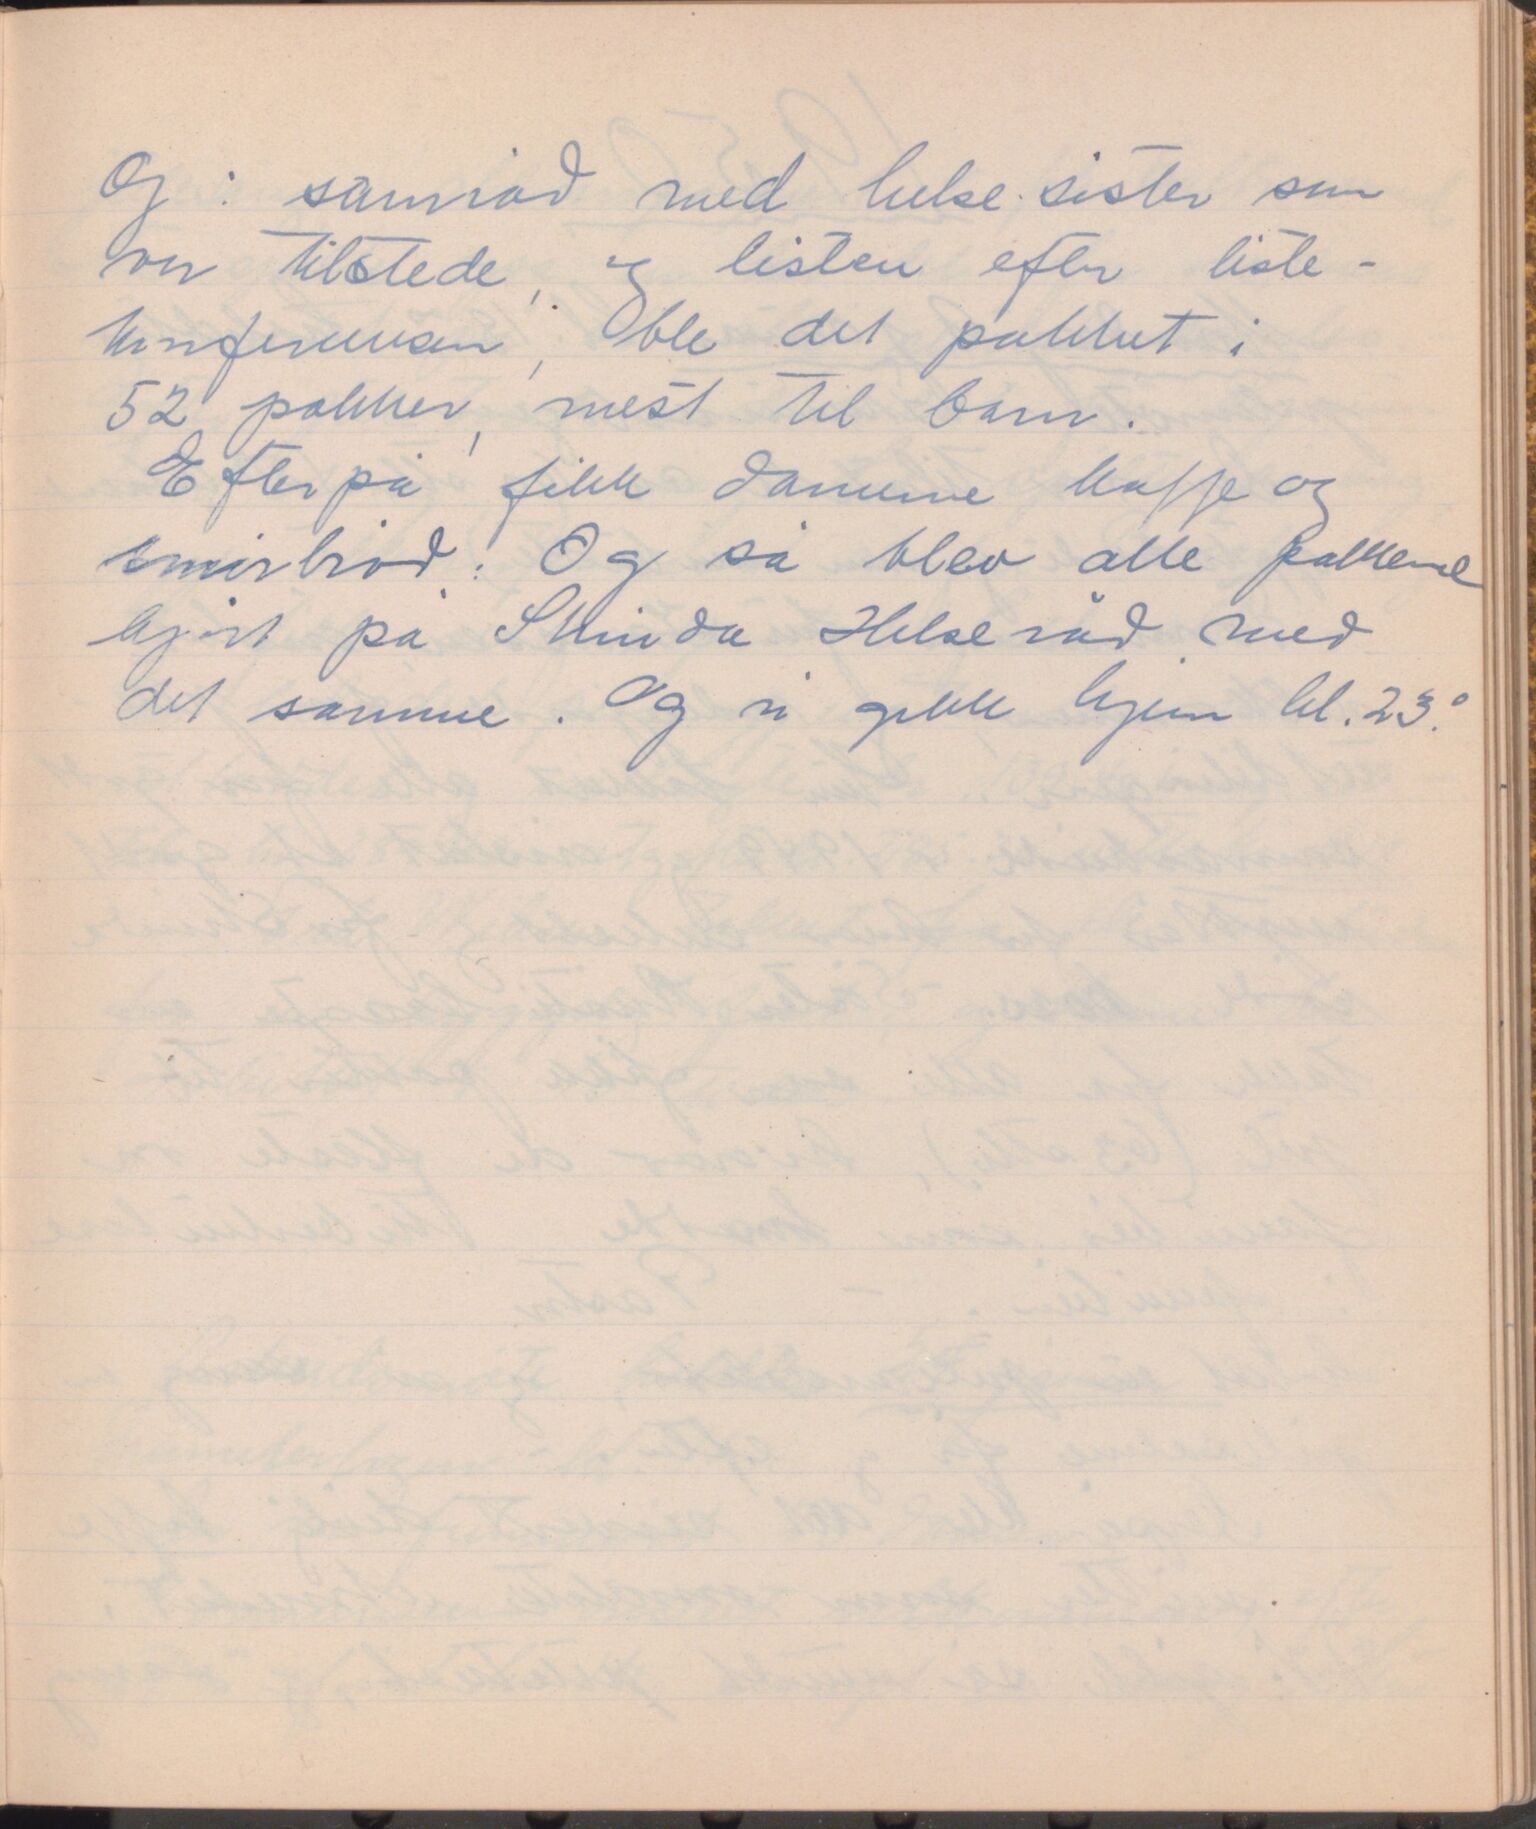 Og i samråd med helse-sister som
var tilstede, og listen efter liste-
konferansen, ble det pakket i
52 pakker, mest til barn.
Efterpå fikk damene kaffe og
smørbrød. Og så blev alle pakkene
kjørt på Strinda Helseråd med
det samme. Og vi gikk hjem kl. 23.°